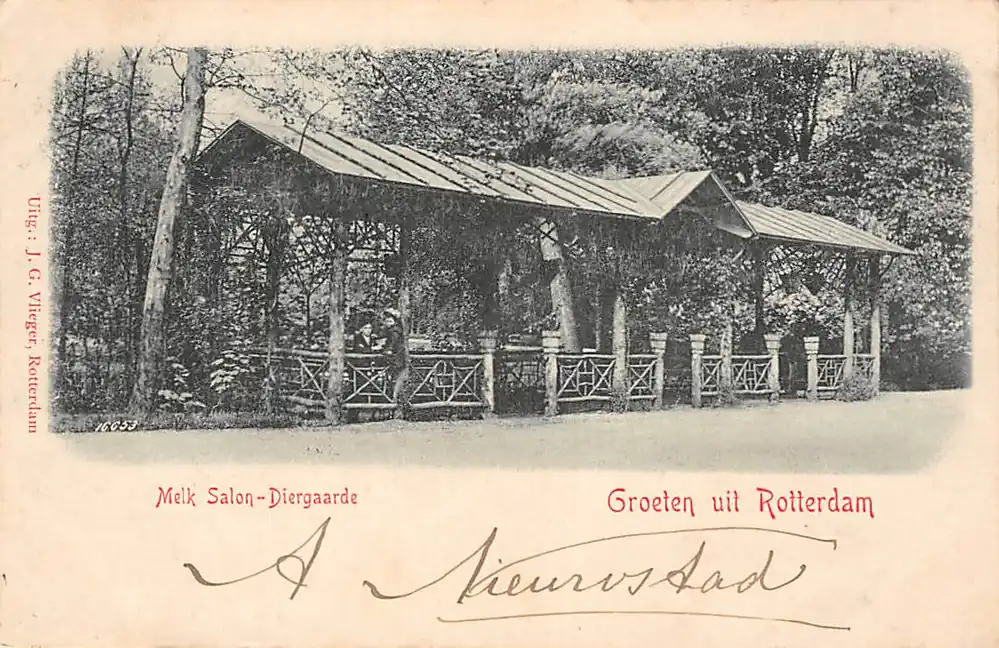 Uitg.: J. G. Vlieger, Rotterdam
16653
Melk Salon-Diergaarde
Groeten uit Rotterdam
A Nieuwstad